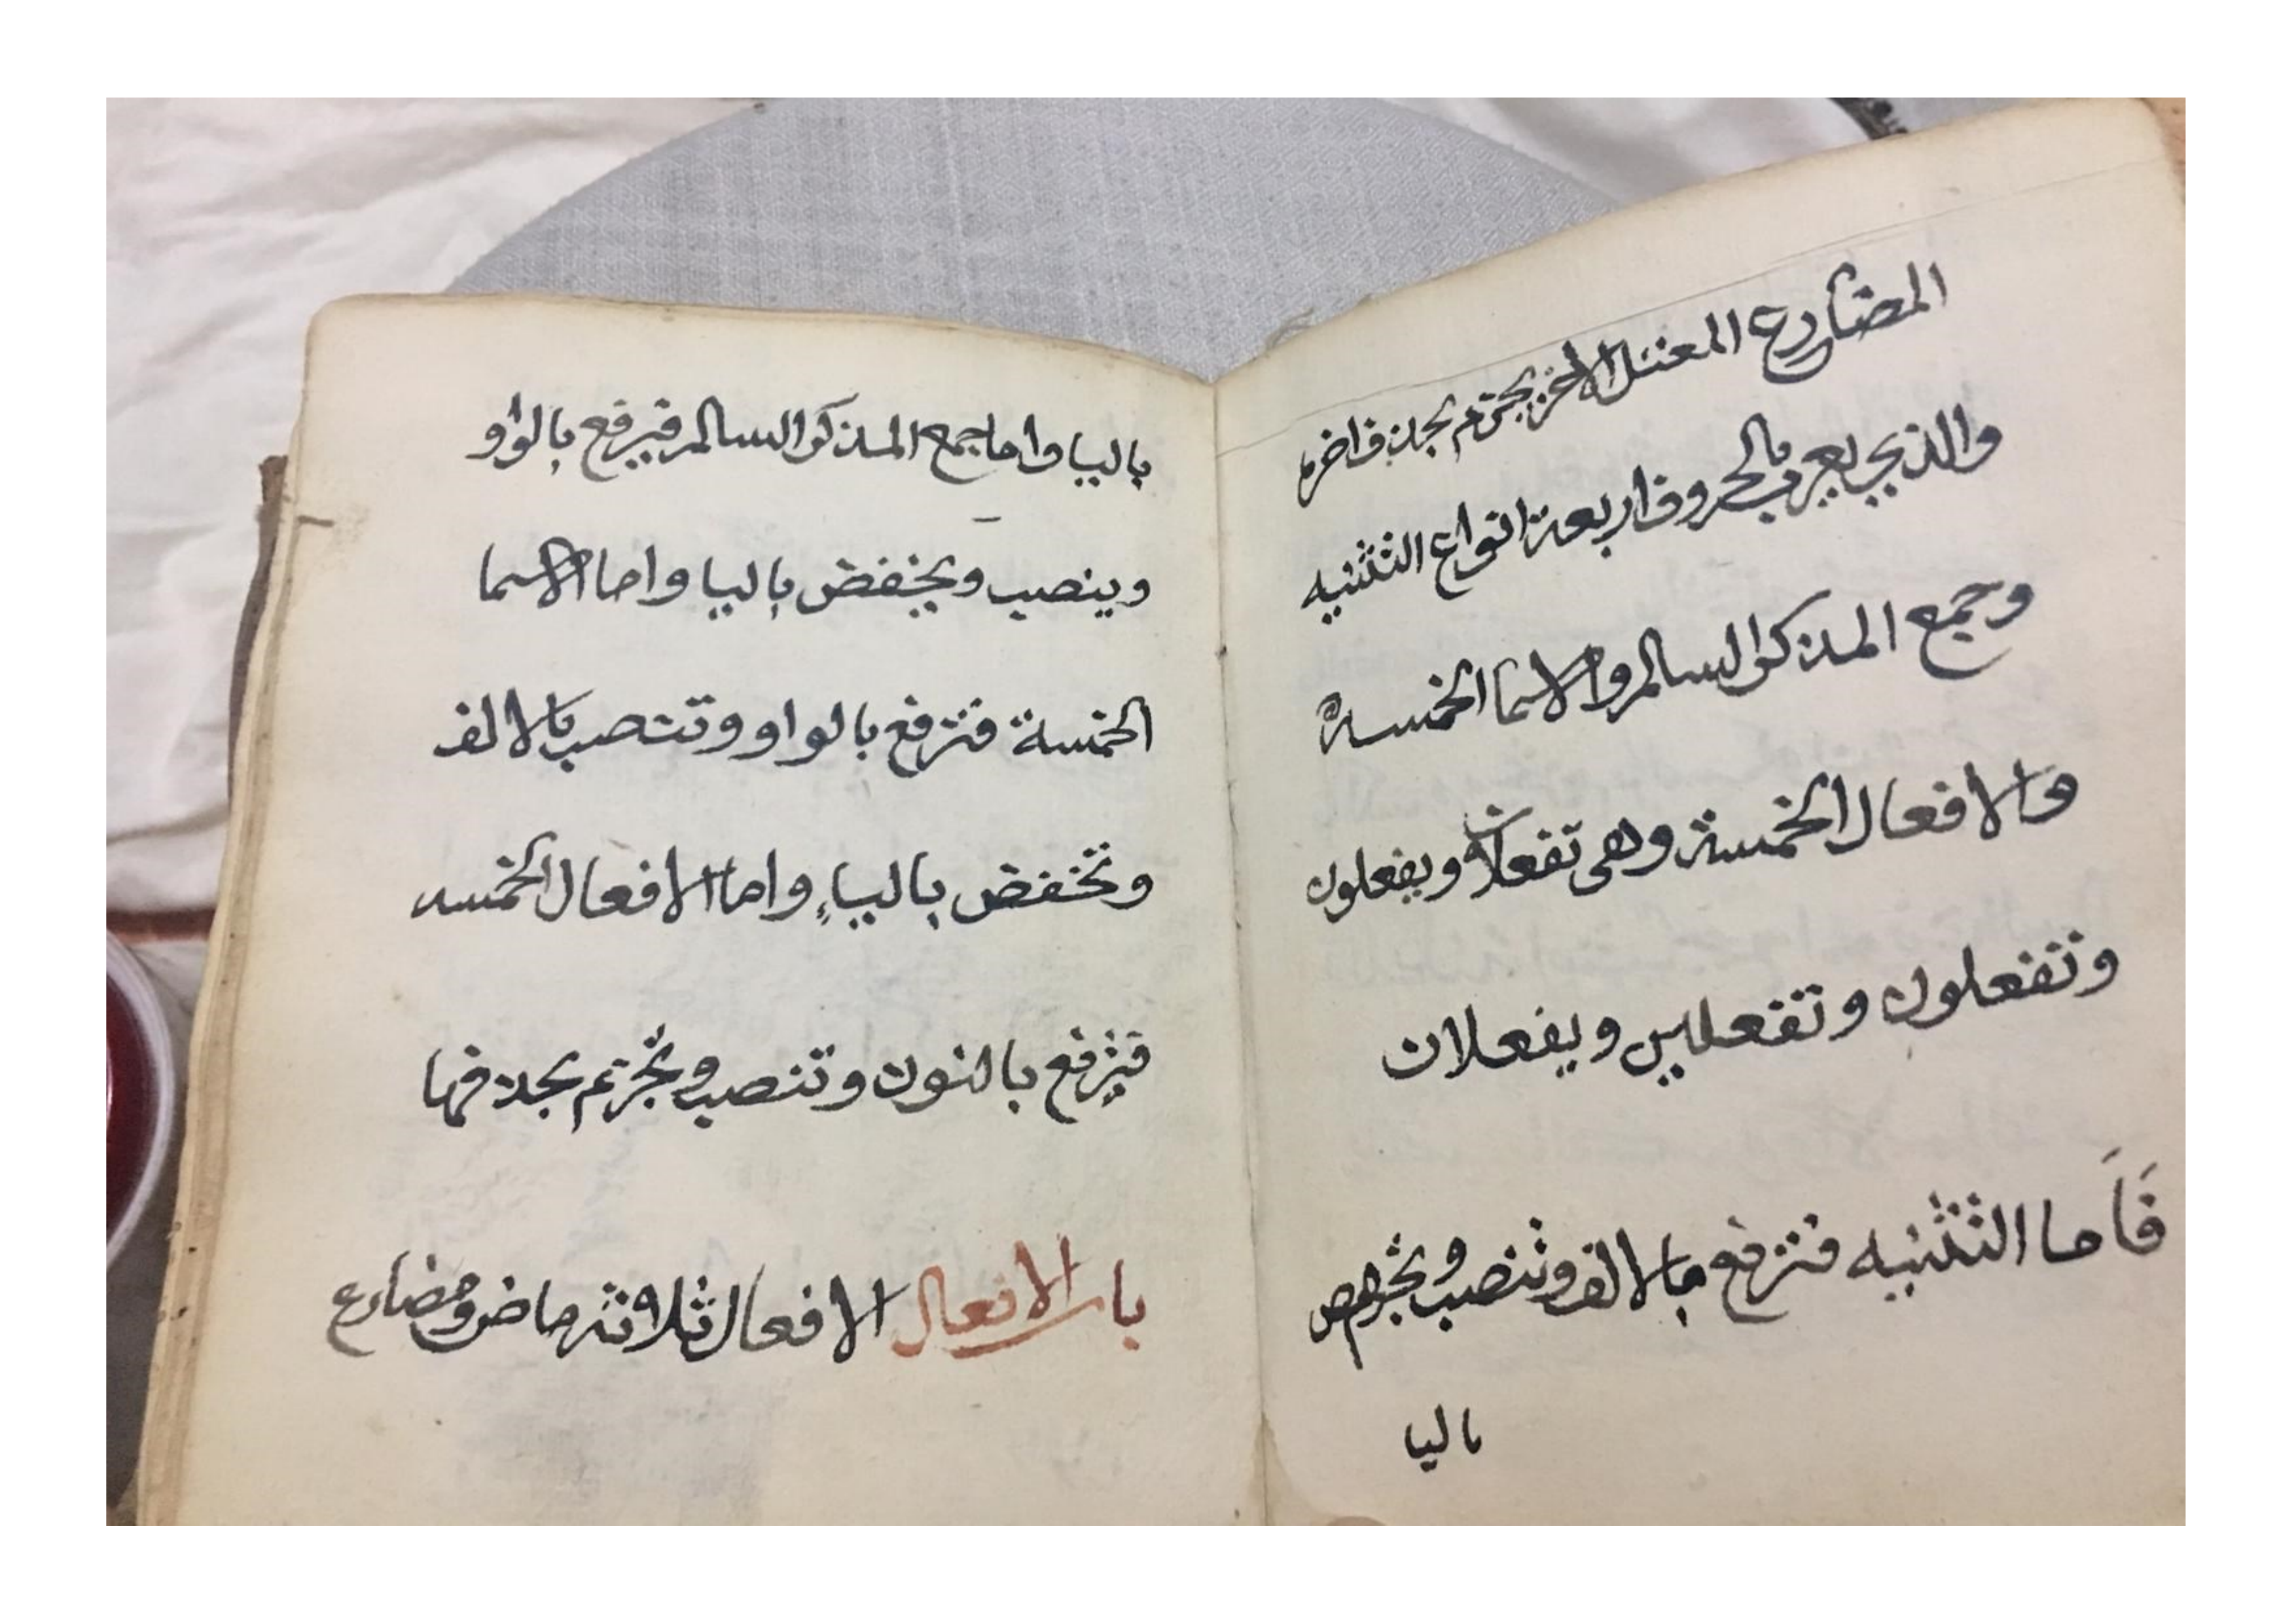 المضارع المعتل الاخر يجزم بحذف اخره
والذي يعرب بالحروف اربعة انواع التثنيه
وجمع المذكر السالم والاسما الخمسه
والافعال الخمسة وهي تفعلان ويفعلون
وتفعلون وتفعلين ويفعلان
فَاَما التثنيه فترفع بالالف وتنصب
باليا
باليا واما جمع المذكر السالم فيرفع بالواو
وينصب ويخفض باليا واما الاسما
الخمسة فترفع بالواو وتنصب بالالف
وتخفض بالياءِ واما الافعال الخمسه
فترفع بالنون وتنصب وتجزم بحذفها
باب الافعال الافعال ثلاثة ماض ومضارع